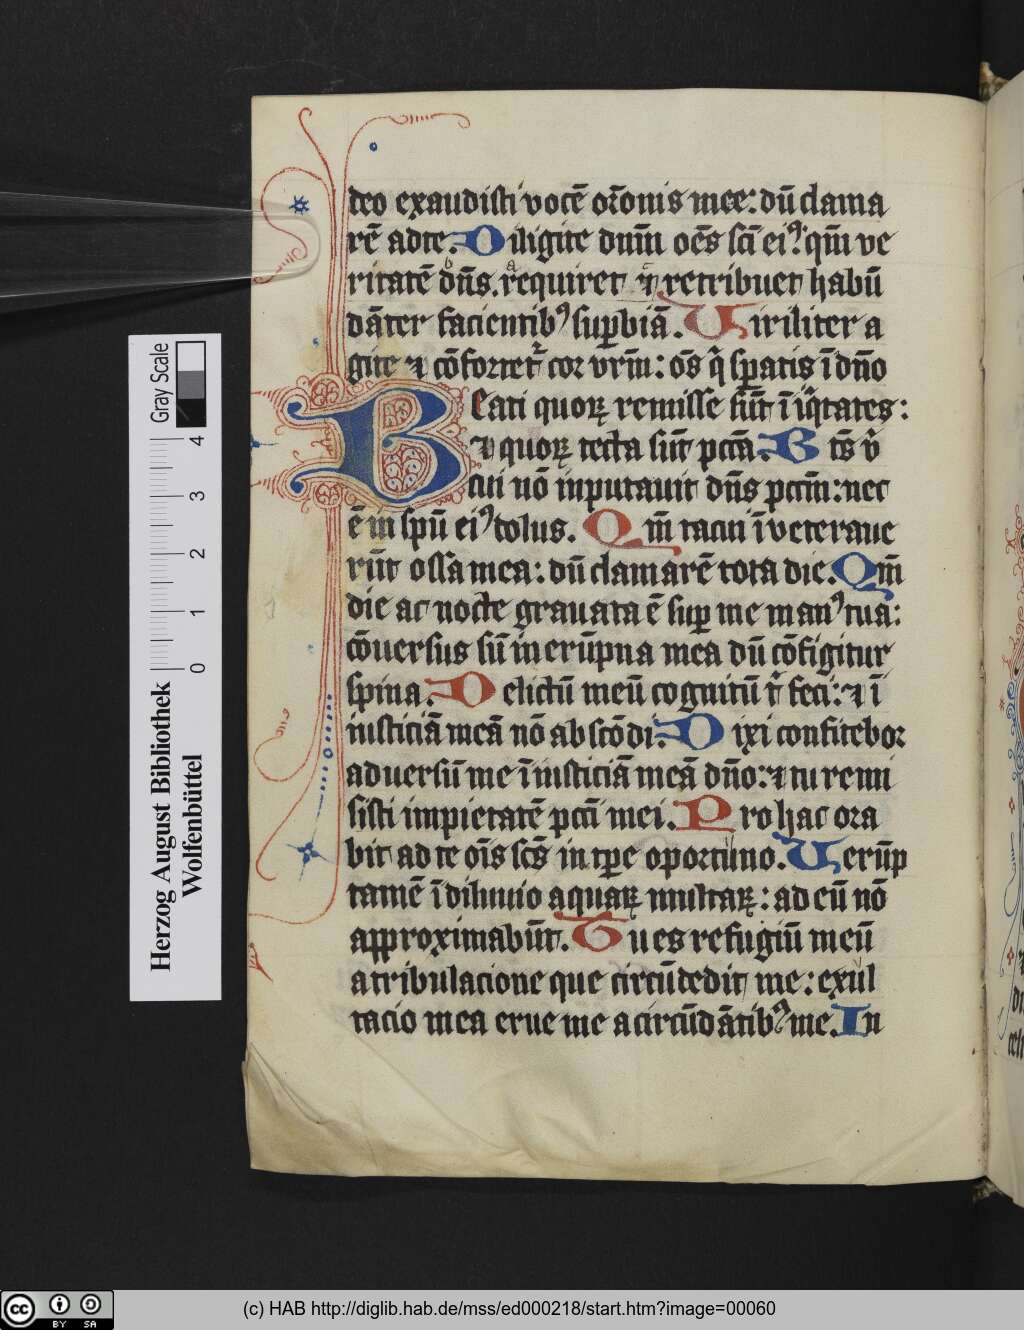 deo exaudisti vocē or̄onis mee: dū clama
rē ad te. Diligite dnm̄ oēs sc̄i eiꝰ qm̄ ve
ritatē dn̄s. requiret ⁊ retribuet habū
dāter facientibꝰ suꝑbiā. Uiriliter a
gite ⁊ cōfortet̄ cor vr̄m: oēs q̄ sꝑatis ī dn̄o
Beati quoꝝ remisse sūt īiq̄tates:
⁊ quoꝝ tecta sūt pctā. Bt̄s v̄
cui nō inputauit dn̄s pctm̄: nec
ē in spū eiꝰ dolus. Qm̄ tacui īveteraue
rūt ossa mea: dū clamarē tota die. Qm̄
die ac nocte grauata ē suꝑ me manꝰ tua:
cōuersus sū in erūpna mea dū cōfigitur
spina. Delictū meū cognitū t̄ feci: ⁊ ī
iusticiā meā nō abscōdi. Dixi confitebor
aduersū me īiusticiā meā dn̄o: ⁊ tu remi
sisti impietatē pctī mei. Pro hac ora
bit ad te oīs scs̄ in tꝑe oportuno. Uerūp
tamē ī diluuio aquaꝝ multaꝝ: ad eū nō
approximabūt. Tu es refugiū meū
a tribulacione que circūdedit me: exul
tacio mea erue me a circūdātibꝰ me. In
Herzog August Bibliothek
Wolfenbüttel
Gray Scale
0 1 2 3 4
(c) HAB http://diglib.hab.de/mss/ed000218/start.htm?image=00060
cc BY SA